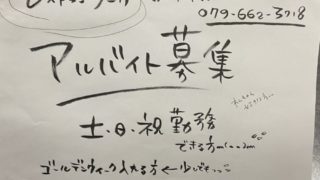 079-662-3718
アルバイト募集
土・日・祝勤務
できる方m(--)m
ゴールデンウィーク入れる方←少しでも...